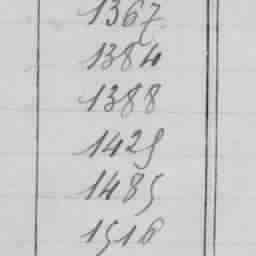 1367
1384
1388
1425
1485
1516